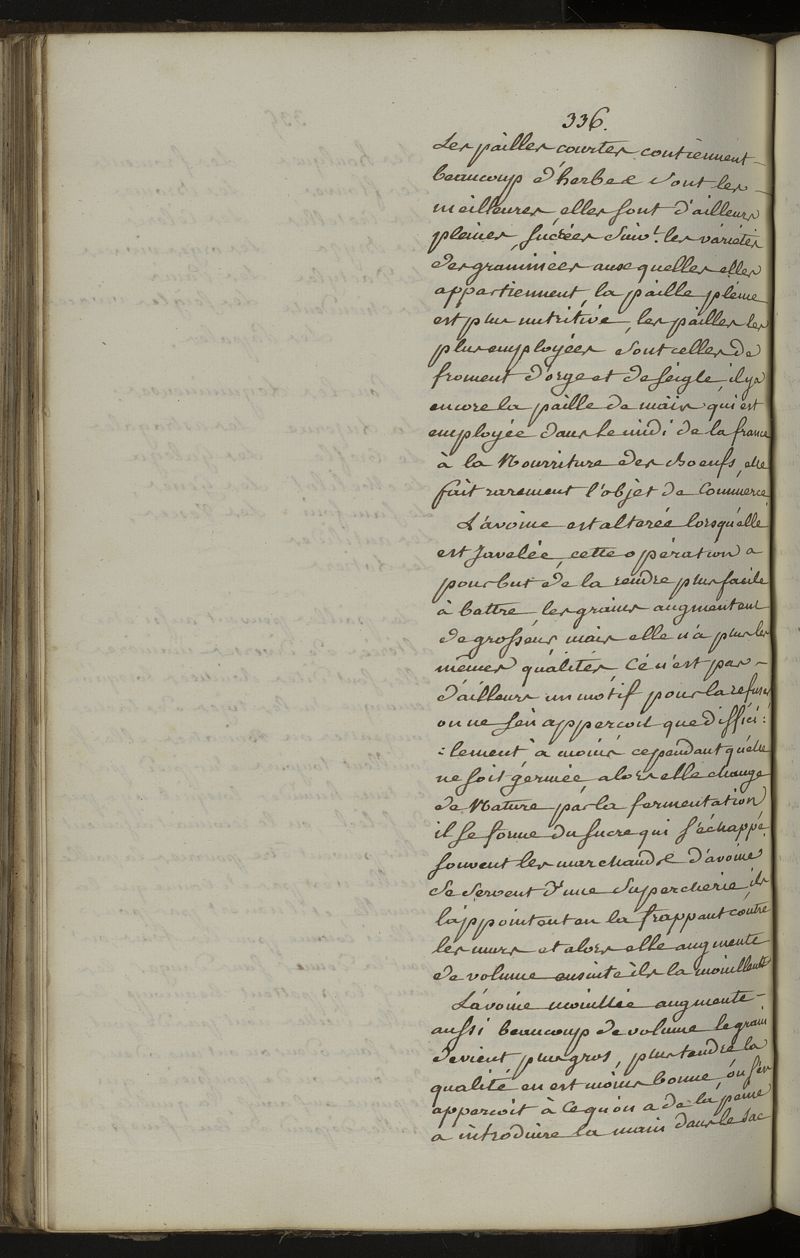 336.
Les pailles courtes contiennent
beaucoup d'herbe & sont les
meilleures, elles sont d'ailleurs
pleines, sucrées suiv.t les variétés
des graminées auxquelles elles
appartiennent, la paille pleine
est plus nutritive, les pailles les
plus employées sont celles de
froment d'orge et de seigle, il y a
encore la paille de mais qui est
employée dans le midi de la france
à la Nourriture des boeufs, elle
fait rarement l'objet de Commerce
L'avoine est alterée lorsqu'elle
est Javelée, cette opération a
pour but de la rendre plus facile
à battre, les grains augmentent
de grosseur mais elle n'a plus les
mêmes qualités, Ce n'est pas
d'ailleurs un motif pour la refuser
on ne s'en appercoit que diffici:
:lement à moins cependant qu'elle
ne soit germée alors elle change
de Nature par la fermentation
il se forme du sucre qui s'échappe
souvent les marchands d'avoine
se servent d'une supercherie, ils
l'appointent en la frappant contre
les murs et alors elle augmente
de volume ensuite ils la mouillent
L'avoine mouillée augmente
aussi beaucoup de volume le grain
devient plus gros, plus tendre la
qualité en est moins bonne, on s'en
appercoit à ce qu'on a de la peine
a introduire la main dans le sac